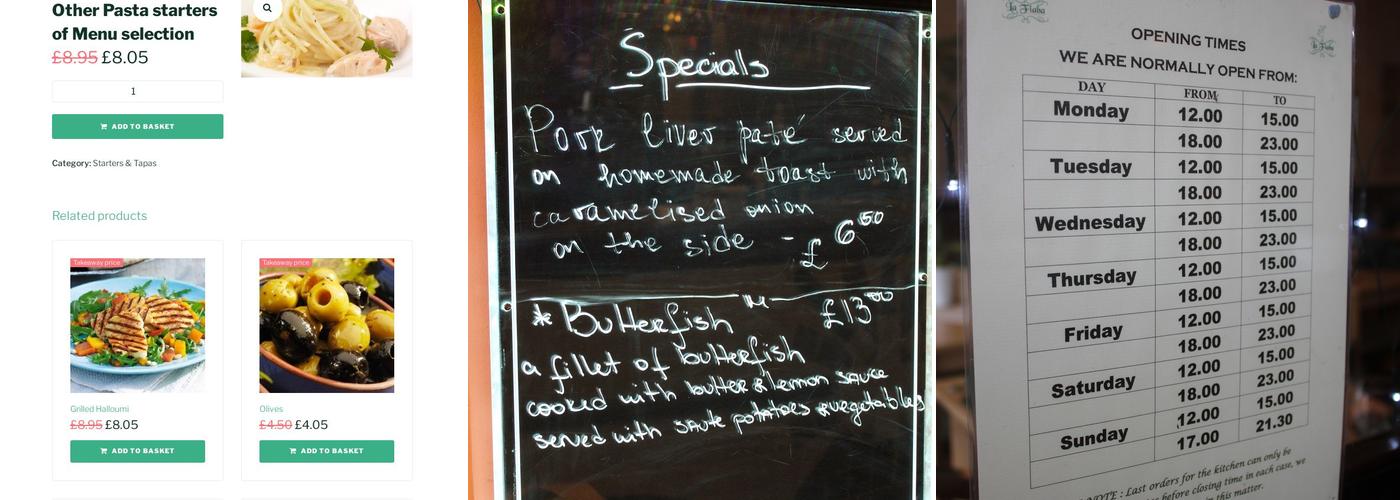 Other Pasta starters
of Menu selection
£8.95 £8.05
1
ADD TO BASKET
Category: Starters & Tapas
Related products
Takeaway price
Grilled Halloumi
£8.95 £8.05
ADD TO BASKET
Takeaway price
Olives
£4.50 £4.05
ADD TO BASKET
Specials
Pork liver paté served
on homemade toast with
caramelised onion
on the side - £6 50
* Butterfish £13 00
a fillet of butterfish
cooked with butter & lemon sauce
served with saute potatoes & vegetables
La Flaba
OPENING TIMES
WE ARE NORMALLY OPEN FROM:
DAY FROM TO
Monday 12.00 15.00
18.00 23.00
Tuesday 12.00 15.00
18.00 23.00
Wednesday 12.00 15.00
18.00 23.00
Thursday 12.00 15.00
18.00 23.00
Friday 12.00 15.00
18.00 23.00
Saturday 12.00 15.00
18.00 23.00
Sunday 12.00 15.00
17.00 21.30
NOTE : Last orders for the kitchen can only be
before closing time in each case, we
in this matter.